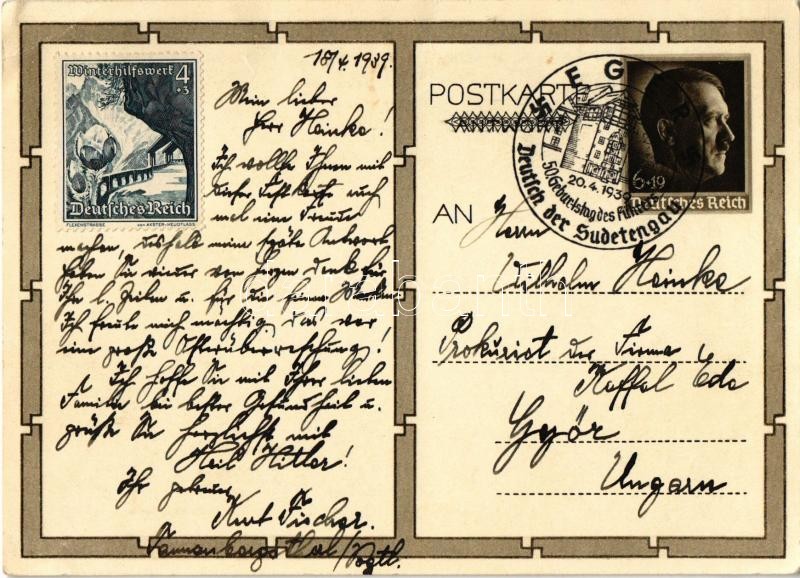 18/4. 1939.
Winterhilfswerk 4
+3
Deutsches Reich
FLEXENSTRASSE VON AXSTER-HEUDTLASS
Mein lieber
Herr Heinke!
Ich wollte Ihnen mit
dieser Festkarte auch
mal eine Freude
machen, deshalb meine späte Antwort
haben Sie wieder von Herzen Dank für
Ihr l. Zeilen u. für die feinen
Ich freute mich mächtig, das war
eine große Osterüberraschung!
Ich hoffe Sie mit Ihrer lieben
Familie bei bester Gesundheit u.
grüße Sie herzlichst mit
Heil Hitler!
Ihr getreuer
Kurt Fischer.
Tannenbergsthal/Vogtl.
POSTKARTE
20.4.1939
50. Geburtstag des Führers
Deutsch der Sudetengau
6+19
Deutsches Reich
AN Herrn
Wilhelm Heinke
Prokurist der Firma
Koffol Ede
Győr
Ungarn